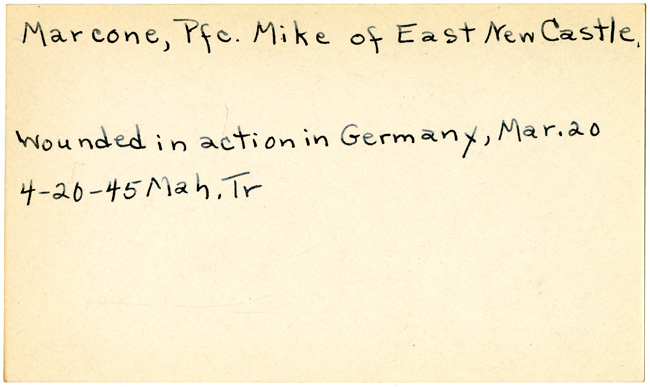 Marcone, Pfc. Mike of East New Castle.
Wounded in action in Germany, Mar. 20
4-20-45 Mah. Tr